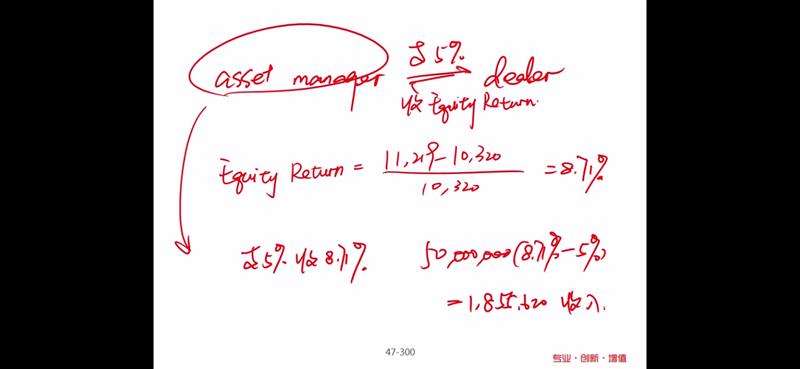 asset manager 支5% dealer
收 Equity Return.
Equity Return = 11,219-10,320 / 10,320 = 8.71%
支5% 收8.71% 50,000,000(8.71%-5%)
=1,855,620 收入.
47-300
专业·创新·增值